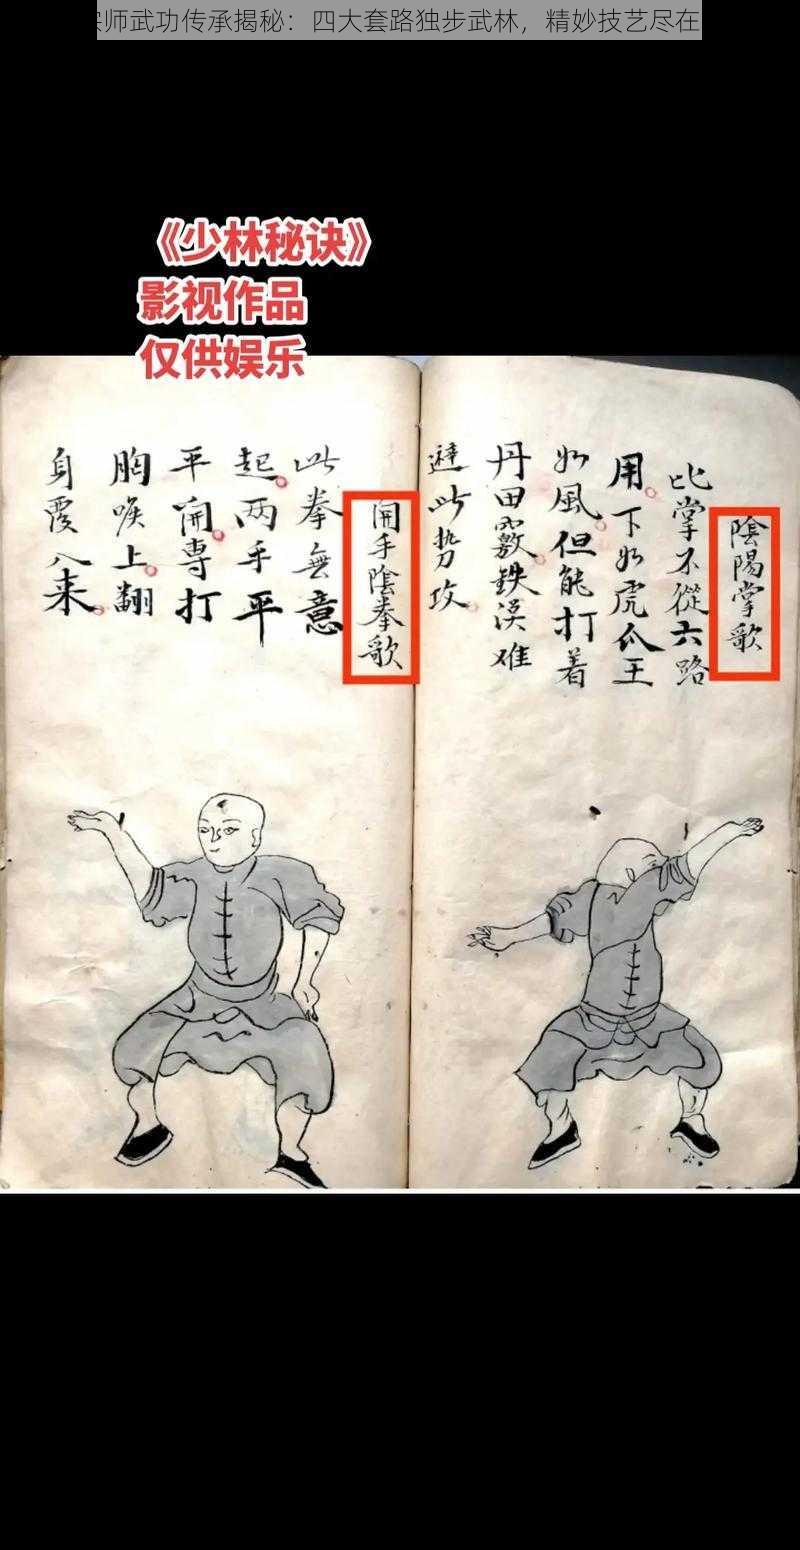 宗师武功传承揭秘：四大套路独步武林，精妙技艺尽在
《少林秘诀》
影视作品
仅供娱乐
陰陽掌歌
此掌不從六路
用下如虎爪王
如風但能打着
丹田竅鉄漢难
避此势攻
開手陰拳歌
此拳無意
起两手平
平開専打
胸喉上翻
身覆入来